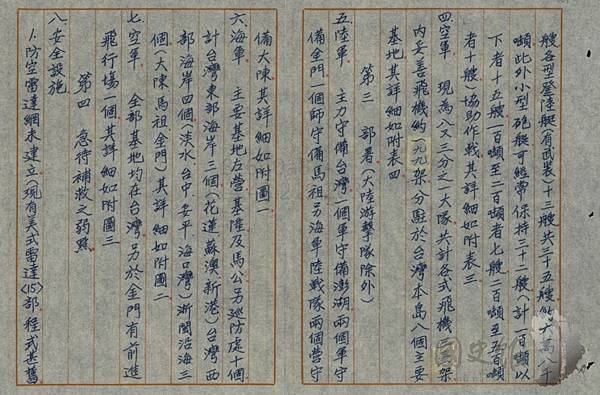 艘各型登陸艇(有武裝)十三艘共三十五艘約大萬八千
噸此外小型砲艇可經常保持三十二艘(計一百噸以
下者十五艘一百噸至二百噸者七艘二百噸至五百噸
者十艘)協助作戰其詳細如附表三
四.空軍 現為八又三分之一大隊共計各式飛機
架
內妥善飛機約一九九架分駐於台灣本島八個主要
基地其詳細如附表四
第三 部署(大陸游擊隊除外)
五.陸軍 主力守備台灣一個軍守備澎湖兩個軍守
備金門一個師守備馬祖另海軍陸戰隊兩個營守
備大陳其詳細如附圖一
六.海軍 主要基地左營基隆及馬公另巡防處十個
計台灣東部海岸三個(花蓮蘇澳新港)台灣西
部海岸四個(淡水台中安平海口)浙閩沿海三
個(大陳馬祖金門)其詳細如附圖二
七.空軍 全部基地均在台灣另於金門有前進
飛行場一個其詳細如附圖三
第四 急待補救之弱點
八.安全設施
1.防空雷達網未建立(現有美式雷達(15)部程式甚舊